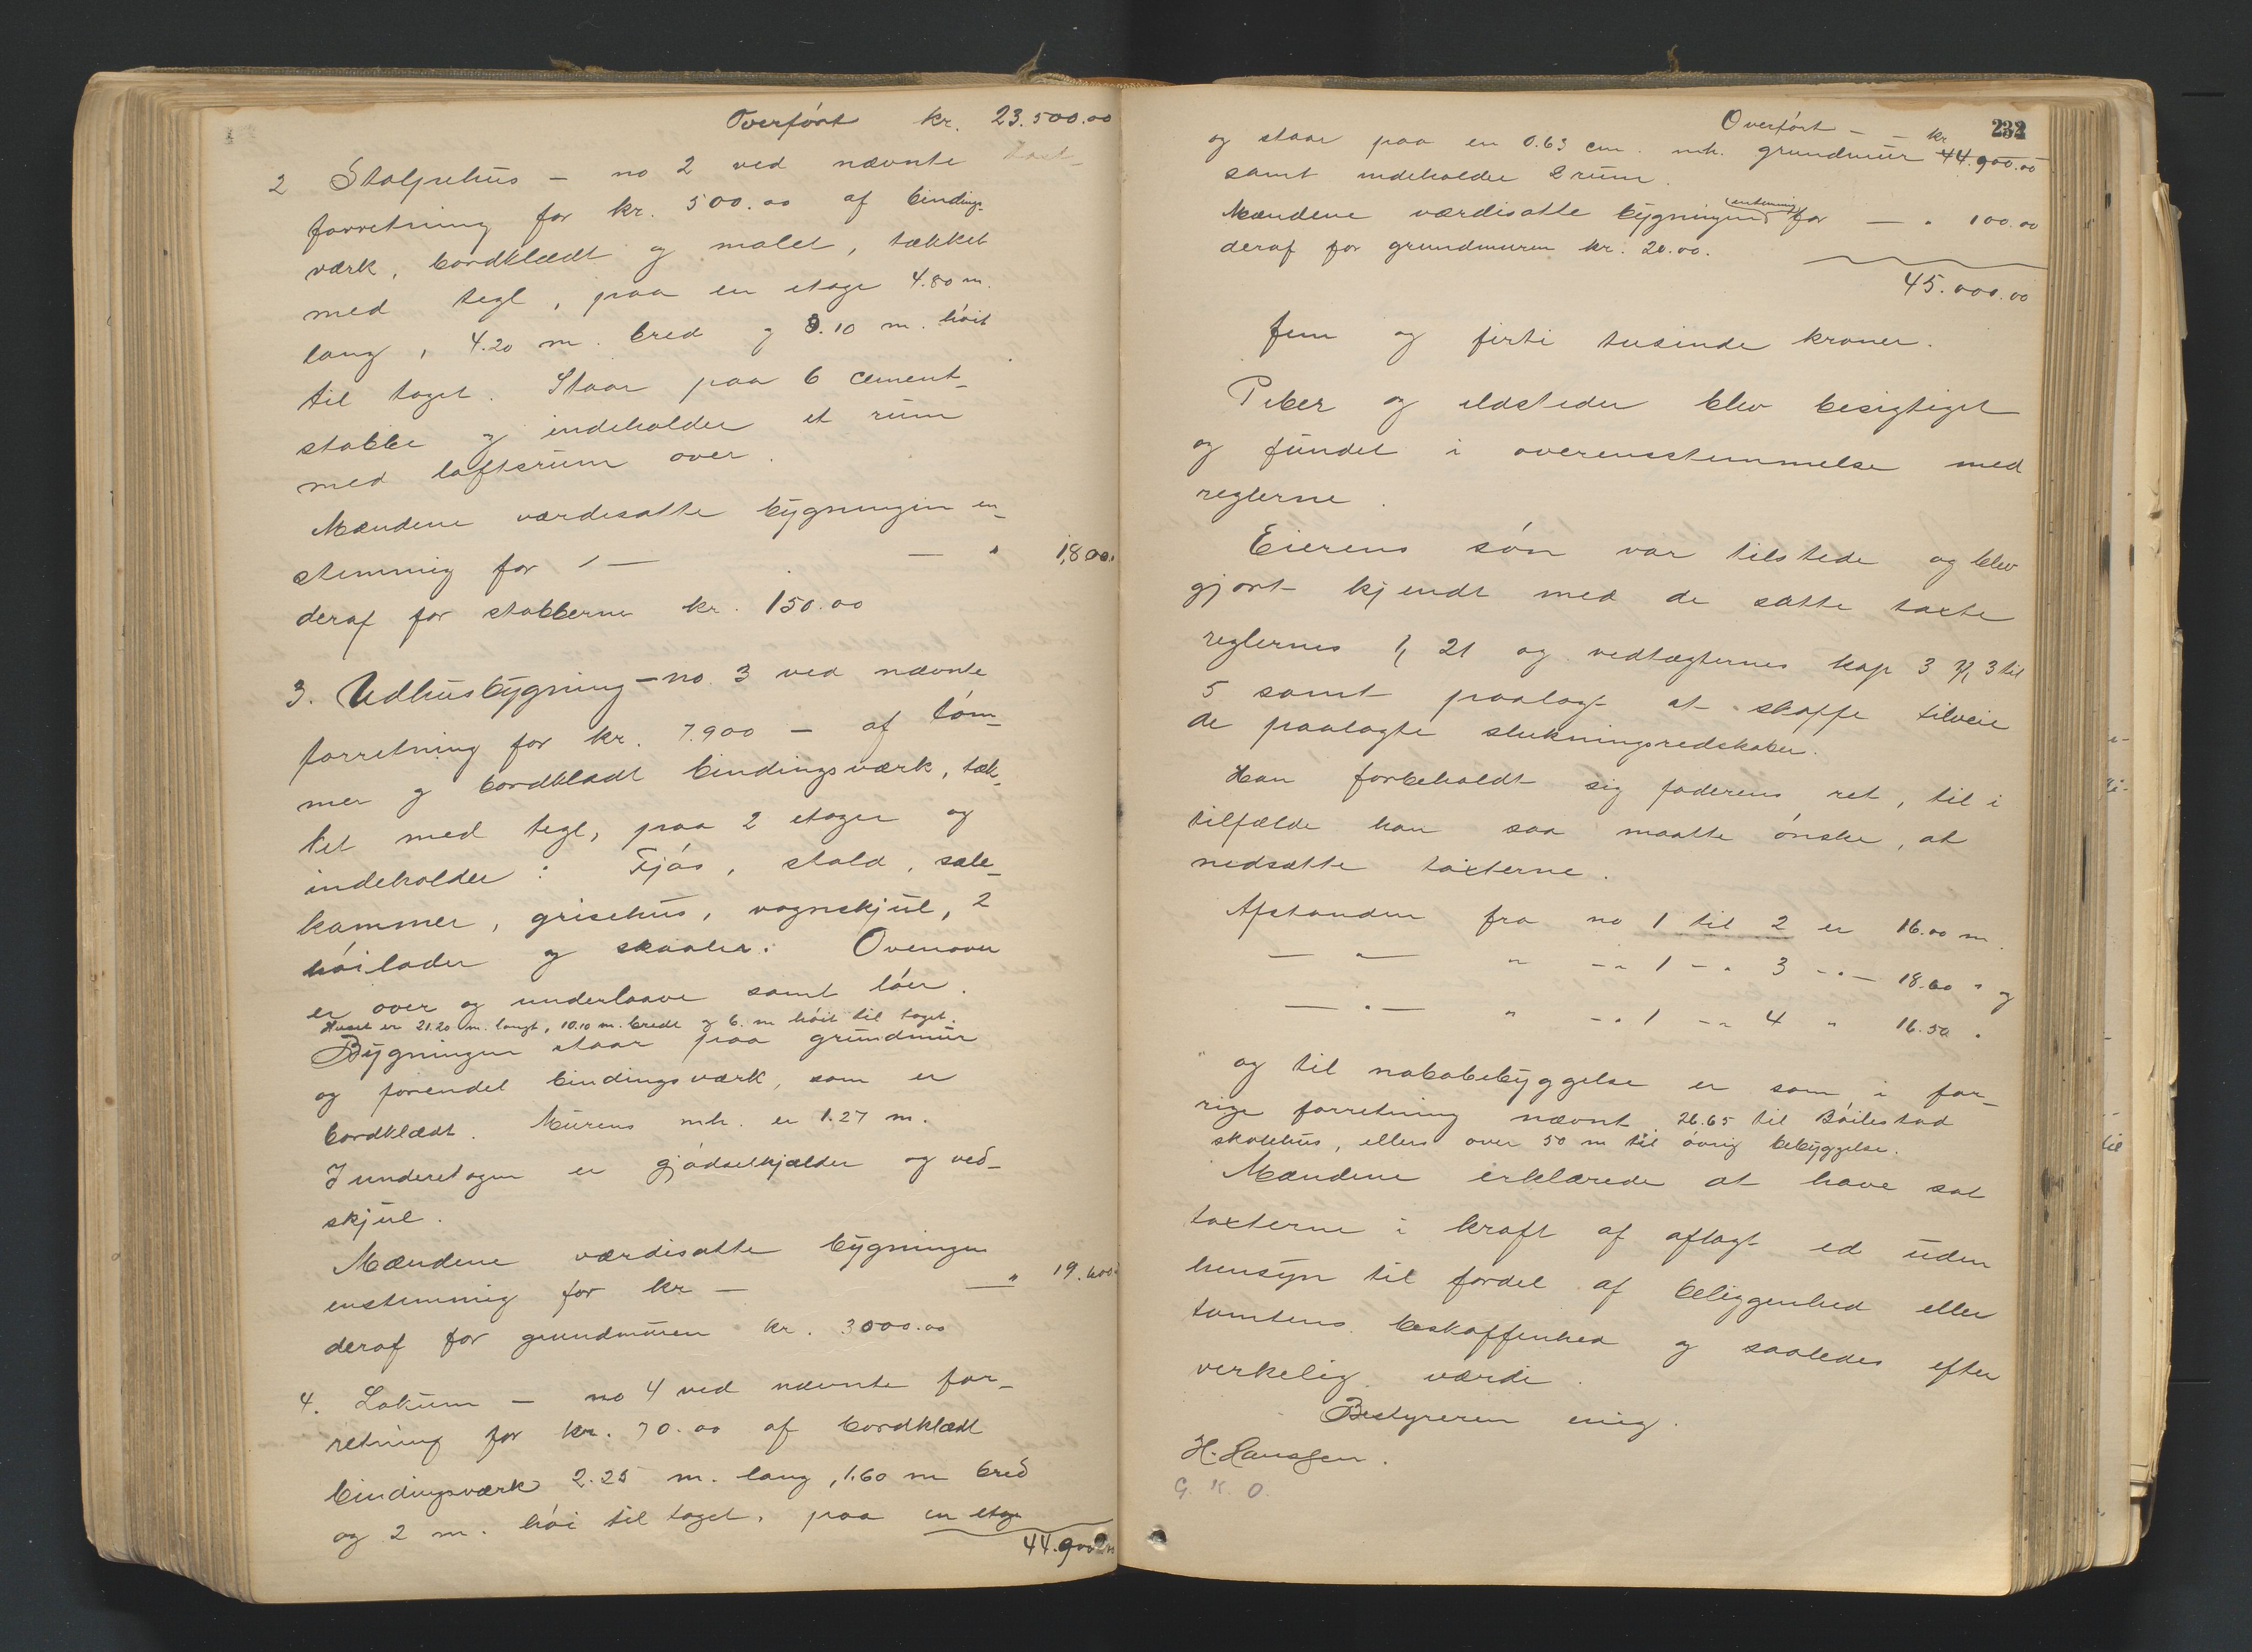 Overført kr. 23.500.00
2 Stolpehus – no 2 ved nævnte taxt-
forretning for kr. 500.00 af bindings-
værk, bordklædt og malet, tækket
med tegl, paa en etage 4.80 m.
lang, 4.20 m. bred og 3.10 m. høit
til taget. Staar paa 6 cement-
stabbe og indeholder et rum
med loftsrum over.
Mændene værdisatte bygningen en-
stemmig for – — " 1,800.
deraf for stabberne kr. 150.00
3. Udhusbygning – no. 3 ved nævnte
forretning for kr. 7.900 – af tøm-
mer og bordklædt bindingsværk, tæk-
ket med tegl, paa 2 etager og
indeholder: Fjøs, stald, sele-
kammer, grisehus, vognskjul, 2
høilader og skaaler. Ovenover
er over og underlaave samt løer.
Huset er 21.20 m. langt, 10.10 m. bredt og 6. m høit til taget.
Bygningen staar paa grundmur
og forendel bindingsværk, som er
bordklædt. Murens mh. er 1.27 m.
I underetagen er gjødselkjælder og ved-
skjul.
Mændene værdisatte bygningen
enstemmig for kr – — " 19.600
deraf for grundmuren kr. 3000.00
4. Lokum – no 4 ved nævnte for-
retning for kr. 70.00 af bordklædt
bindingsværk 2.25 m. lang, 1.60 m bred
og 2 m. høi til taget, paa en etage
44.900.00
232
Overført – – kr 44.900.00
og staar paa en 0.63 cm. mh. grundmur
samt indeholder 2 rum.
Mændene værdisatte bygningen (enstemmig) for — " 100.00
deraf for grundmuren kr. 20.00.
45.000.00
fem og førti tusinde kroner.
Piber og ildsteder blev besigtiget
og fundet i overensstemmelse med
reglerne.
Eierens søn var tilstede og blev
gjort kjendt med de satte taxte
reglernes § 21 og vedtægternes kap 3 § 3 til
5 samt paalagt at skaffe tilveie
de paalagte slukningsredskaber.
Han forbeholdt sig faderens ret, til i
tilfælde han saa maatte ønske, at
nedsætte taxterne.
Afstanden fra no 1 til 2 er 16.00 m.
— " — " – " 1 – " 3 – " – 18.60 " og
— " — " – " 1 – " 4 " 16.50 "
og til nabobebyggelse er som i for-
rige forretning nævnt 26.65 til Bøilestad
skolehus, ellers over 50 m til øvrig bebyggelse.
Mændene erklærede at have sat
taxterne i kraft af aflagt ed uden
hensyn til fordel af beliggenhed eller
tomtens beskaffenhed og saaledes efter
verkelig værdi.
Bestyreren enig.
H. Hanssen.
G. K. O.